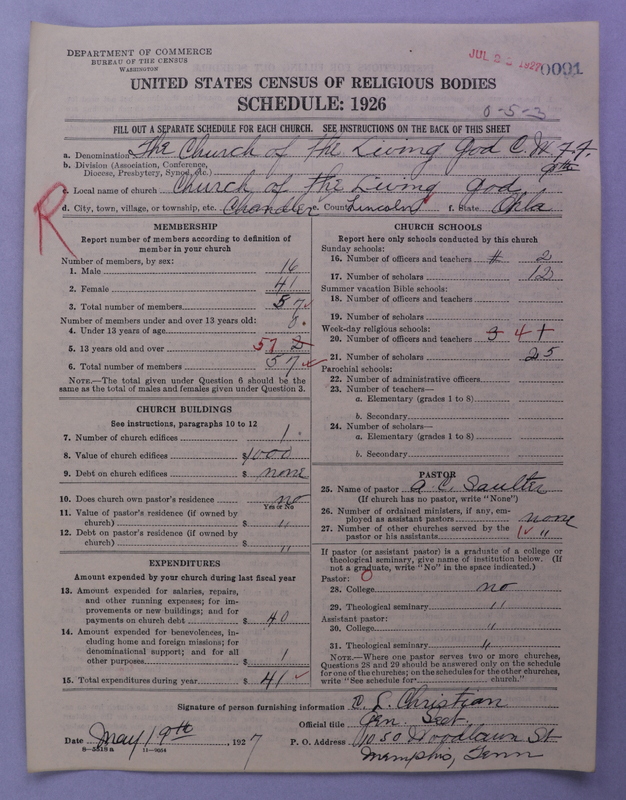 DEPARTMENT OF COMMERCE
BUREAU OF THE CENSUS
WASHINGTON
JUL 1927
0091
UNITED STATES CENSUS OF RELIGIOUS BODIES
SCHEDULE: 1926
0-5-3
FILL OUT A SEPARATE SCHEDULE FOR EACH CHURCH. SEE INSTRUCTIONS ON THE BACK OF THIS SHEET
a. Denomination The Church of the Living God C. W. F. F.
b. Division (Association, Conference,
Diocese, Presbytery, Synod, etc.)
c. Local name of church Church of the Living God
d. City, town, village, or township, etc. Chandler e. County Lincoln f. State Okla
R
MEMBERSHIP
Report number of members according to definition of
member in your church
Number of members, by sex:
1. Male 16
2. Female 41
3. Total number of members 57
Number of members under and over 13 years old:
4. Under 13 years of age 8
5. 13 years old and over 57
6. Total number of members 57
NOTE.—The total given under Question 6 should be the
same as the total of males and females given under Question 3.
CHURCH BUILDINGS
See instructions, paragraphs 10 to 12
7. Number of church edifices 1
8. Value of church edifices $1000
9. Debt on church edifices $ none
10. Does church own pastor's residence no
Yes or No
11. Value of pastor's residence (if owned by
church) $ "
12. Debt on pastor's residence (if owned by
church) $ "
EXPENDITURES
Amount expended by your church during last fiscal year
13. Amount expended for salaries, repairs,
and other running expenses; for im-
provements or new buildings; and for
payments on church debt $ 40
14. Amount expended for benevolences, in-
cluding home and foreign missions; for
denominational support; and for all
other purposes $ 1
15. Total expenditures during year $ 41
CHURCH SCHOOLS
Report here only schools conducted by this church
Sunday schools:
16. Number of officers and teachers # 2
17. Number of scholars 12
Summer vacation Bible schools:
18. Number of officers and teachers
19. Number of scholars
Week-day religious schools:
20. Number of officers and teachers 3 4 1
21. Number of scholars 25
Parochial schools:
22. Number of administrative officers
23. Number of teachers—
a. Elementary (grades 1 to 8)
b. Secondary
24. Number of scholars—
a. Elementary (grades 1 to 8)
b. Secondary
PASTOR
25. Name of pastor A. C. Saulter
(If church has no pastor, write "None")
26. Number of ordained ministers, if any, em-
ployed as assistant pastors none
27. Number of other churches served by the
pastor or his assistants 1 "
If pastor (or assistant pastor) is a graduate of a college or
theological seminary, give name of institution below. (If
not a graduate, write "No" in the space indicated.)
Pastor:
28. College no
29. Theological seminary "
Assistant pastor:
30. College "
31. Theological seminary "
NOTE.—Where one pastor serves two or more churches,
Questions 28 and 29 should be answered only on the schedule
for one of the churches; on the schedules for the other churches,
write "See schedule for church."
Signature of person furnishing information C. L. Christian
Official title Gen. Sect.
Date May 19th, 1927 P. O. Address 1050 Woodlawn St
Memphis, Tenn
8-5518 a